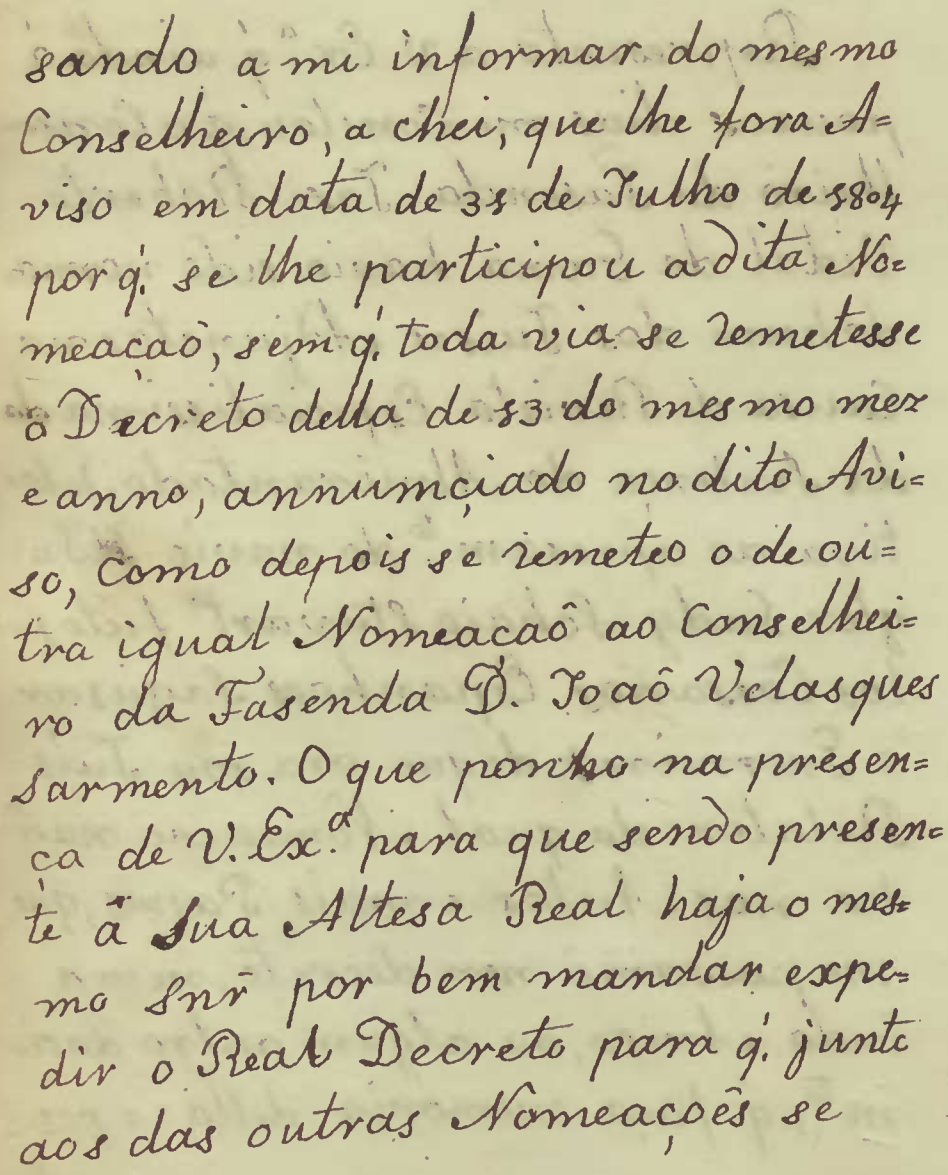 sando a mi informar do mesmo
Conselheiro, a chei, que lhe fora A=
viso em data de 31 de Julho de 1804
por q̃. se lhe participou a dita No=
meaçaõ, sem q̃. toda via se remetesse
o Decreto della de 13 do mesmo mez
e anno, annumçiado no dito Avi=
so, Como depois se remeteo o de ou=
tra igual Nomeaçaõ ao Conselhei=
ro da Fasenda D. Joaõ Velasques
Sarmento. O que ponho na presen=
ça de V. Ex.ª para que sendo presen=
te â Sua Altesa Real haja o mes=
mo Snr̃ por bem mandar expe=
dir o Real Decreto para q̃. junto
aos das outras Nomeaçoẽs se